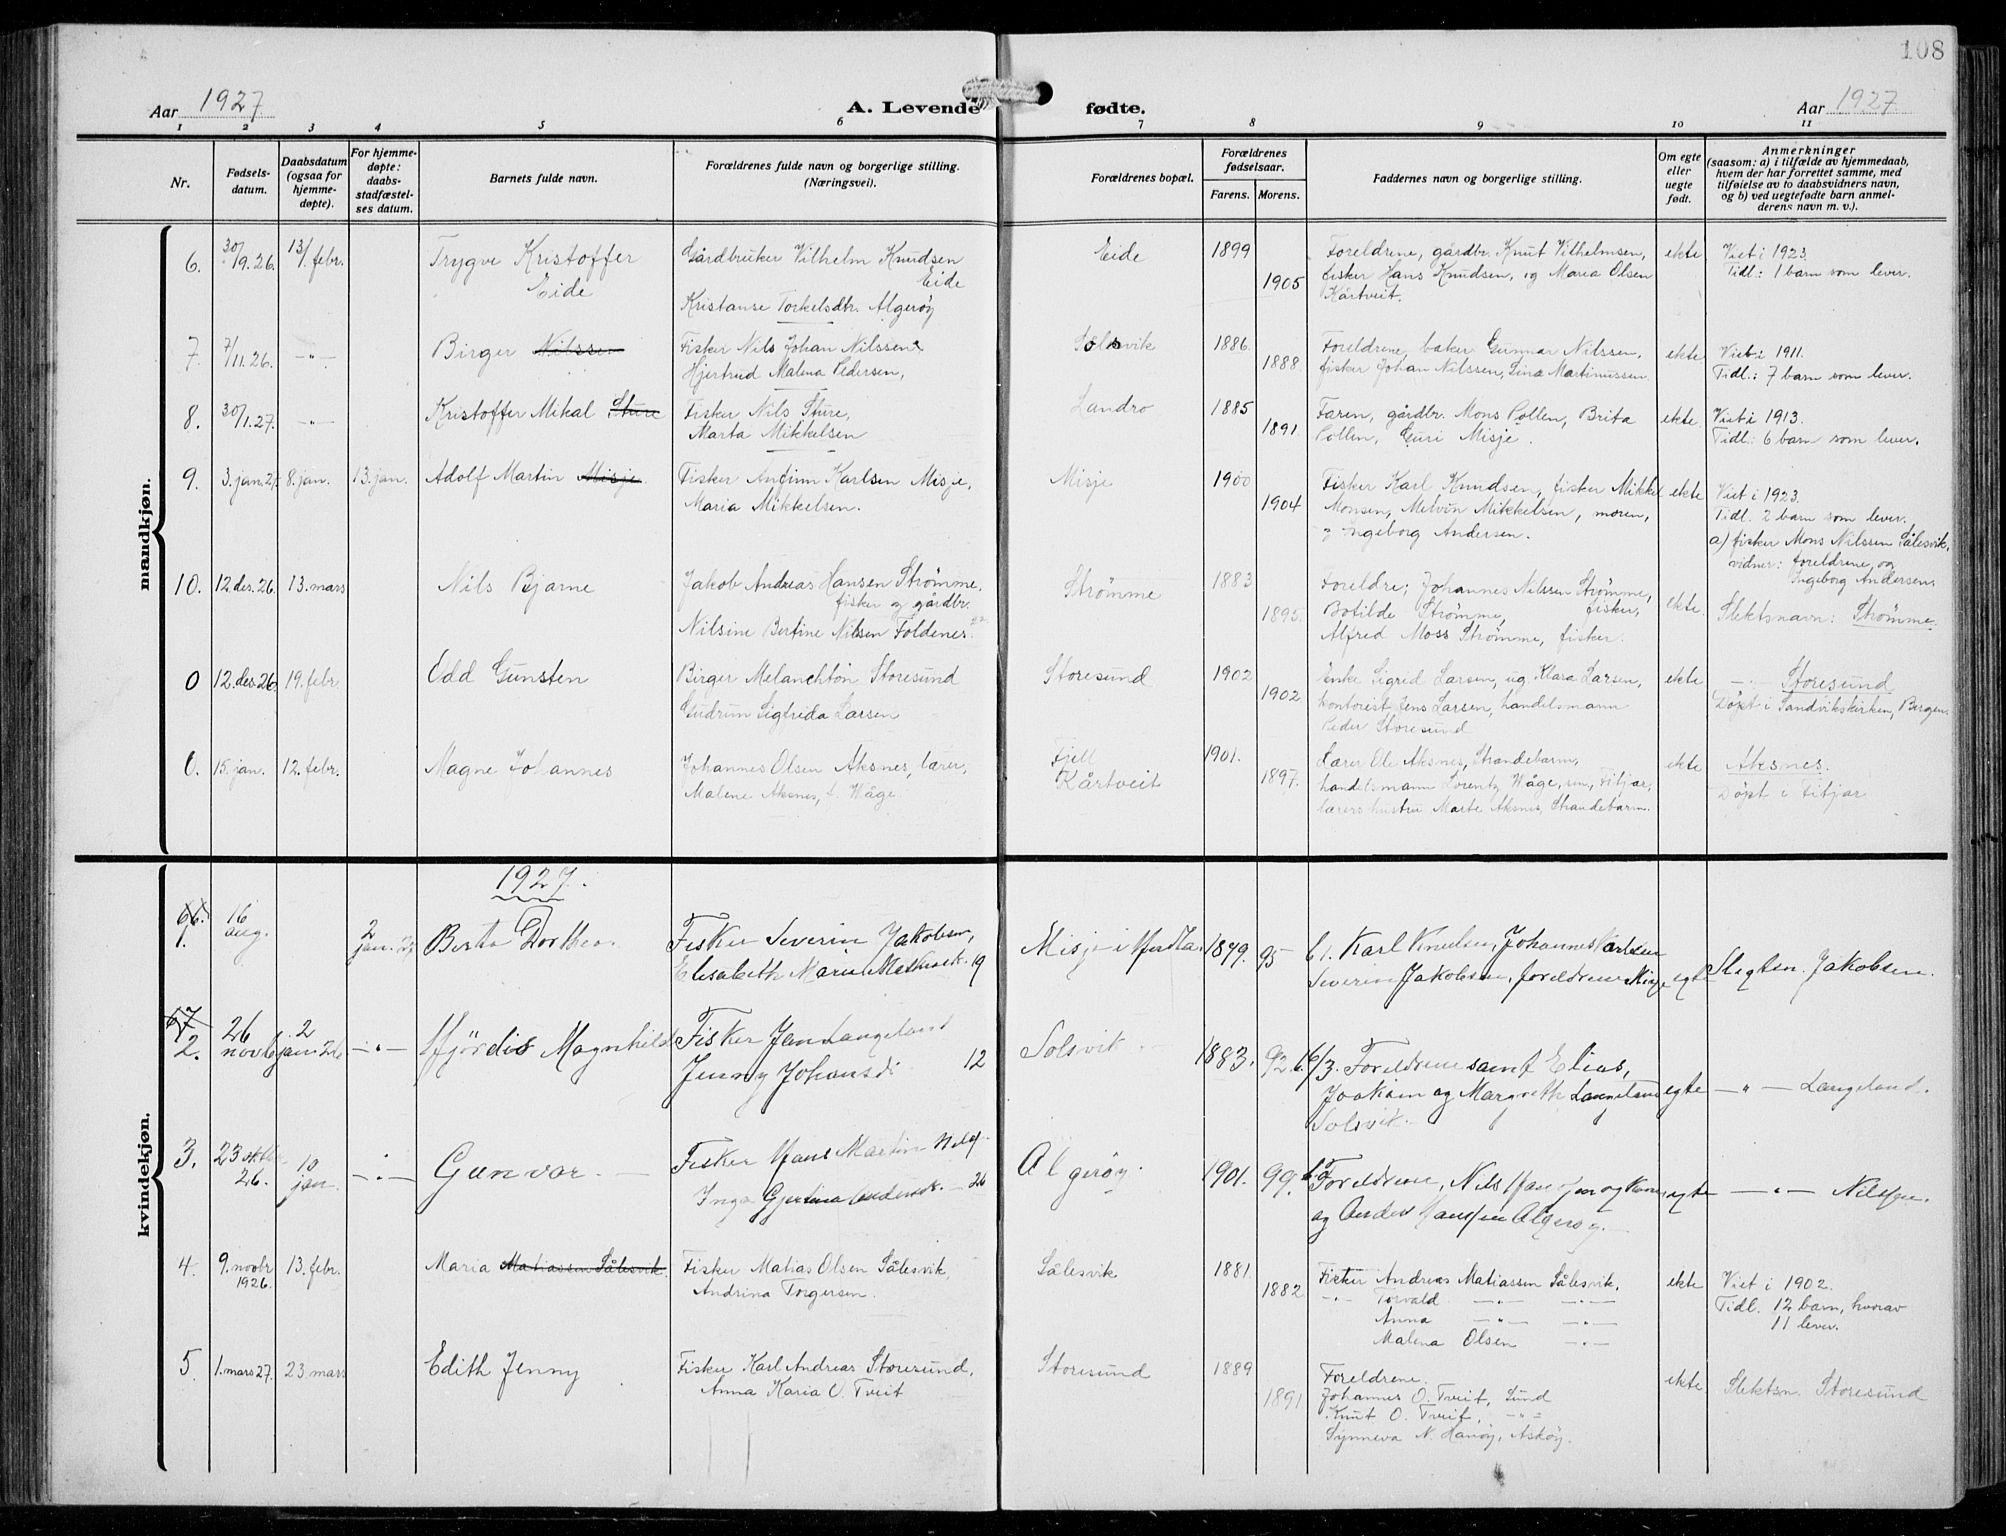 108
Aar 1927
A. Levende fødte.
Aar 1927
1 2 3 4 5 6 7 8 9 10 11
Nr.
Fødsels-
datum.
Daabsdatum
(ogsaa for
hjemme-
døpte).
For hjemme-
døpte:
daabs-
stadfæstel-
ses datum.
Barnets fulde navn.
Forældrenes fulde navn og borgerlige stilling.
(Næringsvei).
Forældrenes bopæl.
Forældrenes
fødselsaar.
Farens. Morens.
Faddernes navn og borgerlige stilling.
Om egte
eller
uegte
født.
Anmerkninger
(saasom: a) i tilfælde av hjemmedaab,
hvem der har forrettet samme, med
tilføielse av to daabsvidners navn,
og b) ved uegtefødte barn anmel-
derens navn m. v.).
mandkjøn.
6. 30/9.26. 13/1 febr. Trygve Kristoffer Eide
Gårdbruker Vilhelm Knudsen
Eide
Kristanse Torkelsdtr. Algerøy
Eide 1899 1905
Foreldrene, gårdbr. Knut Vilhelmsen,
fisker Hans Knudsen, og Maria Olsen
Kårtveit.
ekte
Viet i 1923.
Tidl.: 1 barn som lever.
7. 7/11.26. -"- Birger Nilssen
Fisker Nils Johan Nilssen
Hjertrud Malena Pedersen,
Solsvik 1886 1888
Foreldrene, baker Gunnar Nilssen,
fisker Johan Nilssen, Lina Martinussen
ekte
Viet i 1911.
Tidl.: 7 barn som lever.
8. 30/1.27. -"- Kristoffer Mikal Sture
Fisker Nils Sture,
Marta Mikkelsen
Landro 1885 1891
Faren, gårdbr. Mons Pollen, Brita
Pollen, Guri Misje.
ekte
Viet i 1913.
Tidl.: 6 barn som lever.
9. 3. jan. 27. 8. jan. 13. jan. Adolf Martin Misje
Fisker Anfinn Karlsen Misje,
Maria Mikkelsen.
Misje 1900 1904
Fisker Karl Knudsen, fisker Mikkel
Monsen, Melvin Mikkelsen, moren,
og Ingeborg Andersen.
ekte
Viet i 1923.
Tidl. 2 barn som lever.
a) fisker Mons Nilssen Sålesvik,
vidner: foreldrene, og
Ingeborg Andersen.
10. 12. des. 26. 13. mars Nils Bjarne
Jakob Andreas Hansen Strømme,
fisker og gårdbr.
Nilsine Bertine Nilsen Foldenes.
Strømme 1883 1895
Foreldre; Johannes Nilssen Strømme,
Botilde Strømme, fisker,
Alfred Moss Strømme, fisker.
ekte
Slektsnavn: Strømme.
0 12. des. 26. 19. febr. Odd Gunsten
Birger Melanchton Storesund
Gudrun Sigfrida Larsen
Storesund 1902 1902
Enke Sigrid Larsen, ug. Klara Larsen,
kontorist Jens Larsen, handelsmann
Peder Storesund
ekte
-"- Storesund
Døpt i Sandvikskirken, Bergen.
0. 15. jan. 12. febr. Magne Johannes
Johannes Olsen Aksnes, lærer,
Malene Aksnes, f. Wåge
Fjell
Kårtveit
1901. 1897.
Lærer Ole Aksnes, Strandebarm,
handelsmann Lorentz Wåge, sen, Fitjar,
lærers hustru Marte Aksnes, Strandebarm.
ekte
Aksnes.
Døpt i Fitjar
kvindekjøn.
1927.
66. 1. 16 aug. 2 jan. Berta Dorthea.
Fisker Severin Jakobsen,
Elisabeth Marie 19
Misje i Herdla. 1879. 95
Karl Knudsen, Johannes Karlsen
Severin Jakobsen, foreldrene Misje
egte
Slegtsn. Jakobsen.
67 2. 26 nov 2 jan. -"- Hjördis Magnhild
Fisker Jan Langeland
Jenny Johansd. 12
Solsvik 1883. 92
Foreldrene samt Elias,
Joakim og Margreth Langeland
Solsvik.
egte
-"- Langeland.
3. 23 oktbr 26. 10 jan. -"- Gunvor.
Fisker Hans Martin Nils
Inga 26
Algerøy. 1901. 99.
Foreldrene, Nils
og Anders Hanssen Algerøy.
egte
-"- Nilssen.
4. 9. novbr 1926. 13. febr. Maria Matiassen Sålesvik
Fisker Matias Olsen Sålesvik,
Andrina Torgersen.
Sålesvik 1881. 1882
Fisker Andreas Matiassen Sålesvik,
-"- Torvald -"- -"-
Anna -"- -"-
Malena Olsen -"-
ekte
Viet i 1902.
Tidl. 12 barn, hvorav
11 lever.
5 1. mars 27. 23. mars Edith Jenny
Fisker Karl Andreas Storesund,
Anna Karia O. Tveit
Storesund 1889 1891
Foreldrene.
Johannes O. Tveit, Sund
Knut O. Tveit, -"-
Synneva N. Hanøy, Askøy.
ekte
Slektsn. Storesund